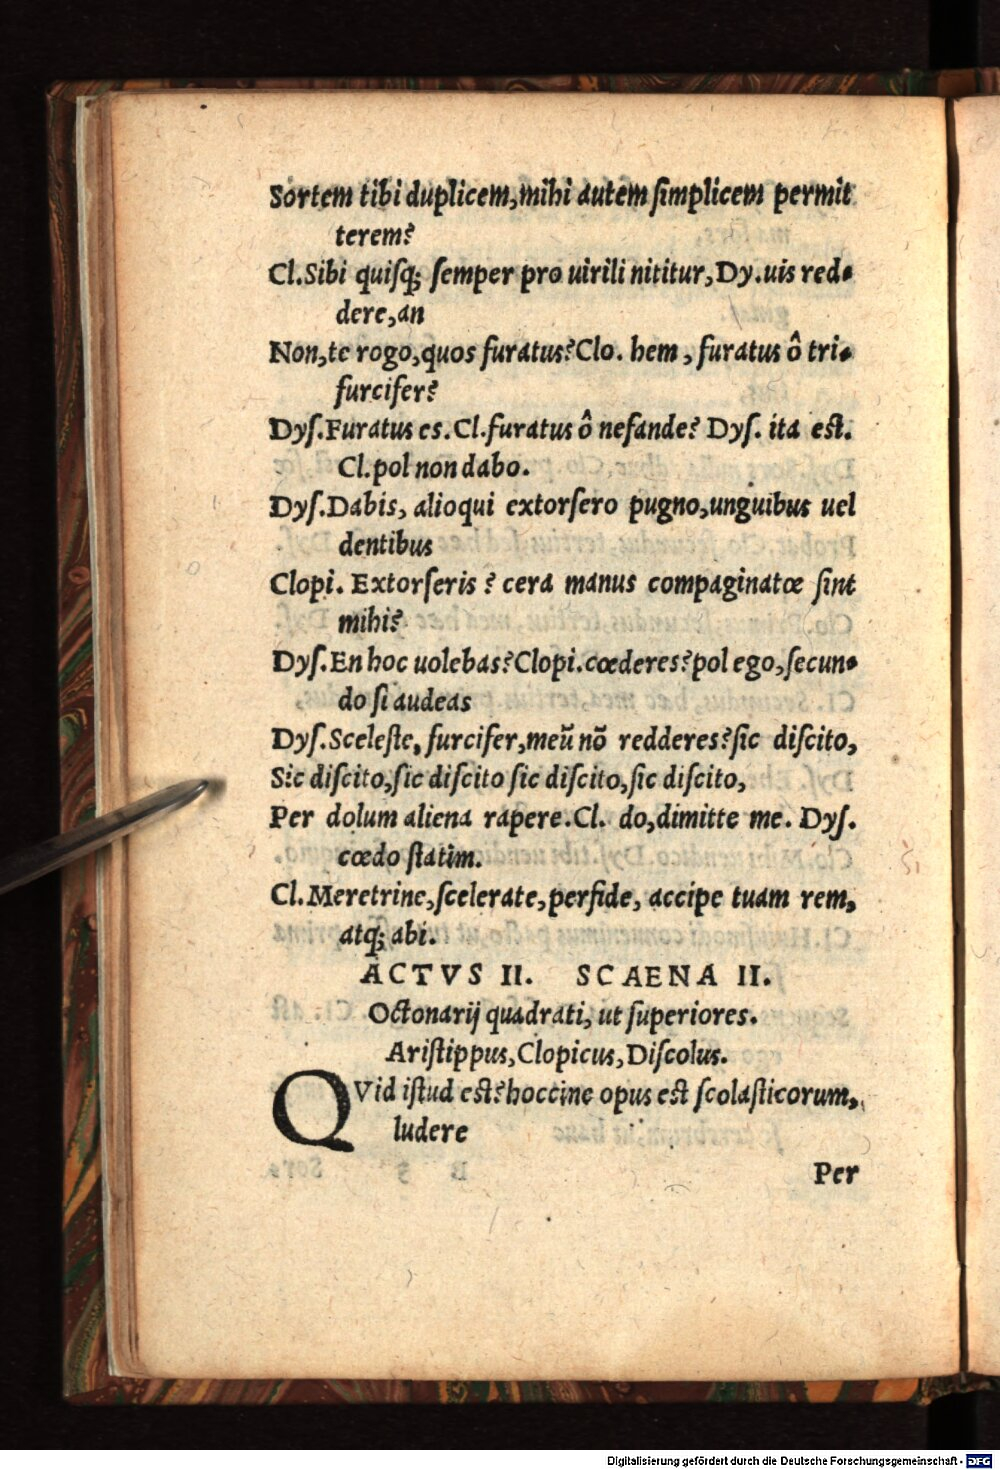 Sortem tibi duplicem, mihi autem ſimplicem permit
terem?
Cl. Sibi quiſq; ſemper pro uirili nititur, Dy. uis red-
dere, an
Non, te rogo, quos furatus? Clo. hem, furatus ô tri-
furcifer?
Dyſ. Furatus es. Cl. furatus ô nefande? Dyſ. ita eſt.
Cl. pol non dabo.
Dyſ. Dabis, alioqui extorſero pugno, unguibus uel
dentibus
Clopi. Extorſeris? cera manus compaginatœ ſint
mihi?
Dyſ. En hoc uolebas? Clopi. cœderes? pol ego, ſecun-
do ſi audeas
Dyſ. Sceleſte, furcifer, meũ nõ redderes? ſic diſcito,
Sic diſcito, ſic diſcito ſic diſcito, ſic diſcito,
Per dolum aliena rapere. Cl. do, dimitte me. Dyſ.
cœdo ſtatim.
Cl. Meretrine, ſcelerate, perfide, accipe tuam rem,
atq; abi.
ACTVS II. SCAENA II.
Octonarij quadrati, ut ſuperiores.
Ariſtippus, Clopicus, Diſcolus.
QVid iſtud eſt? hoccine opus eſt ſcolaſticorum,
ludere
Per
Digitalisierung gefördert durch die Deutsche Forschungsgemeinschaft - DFG